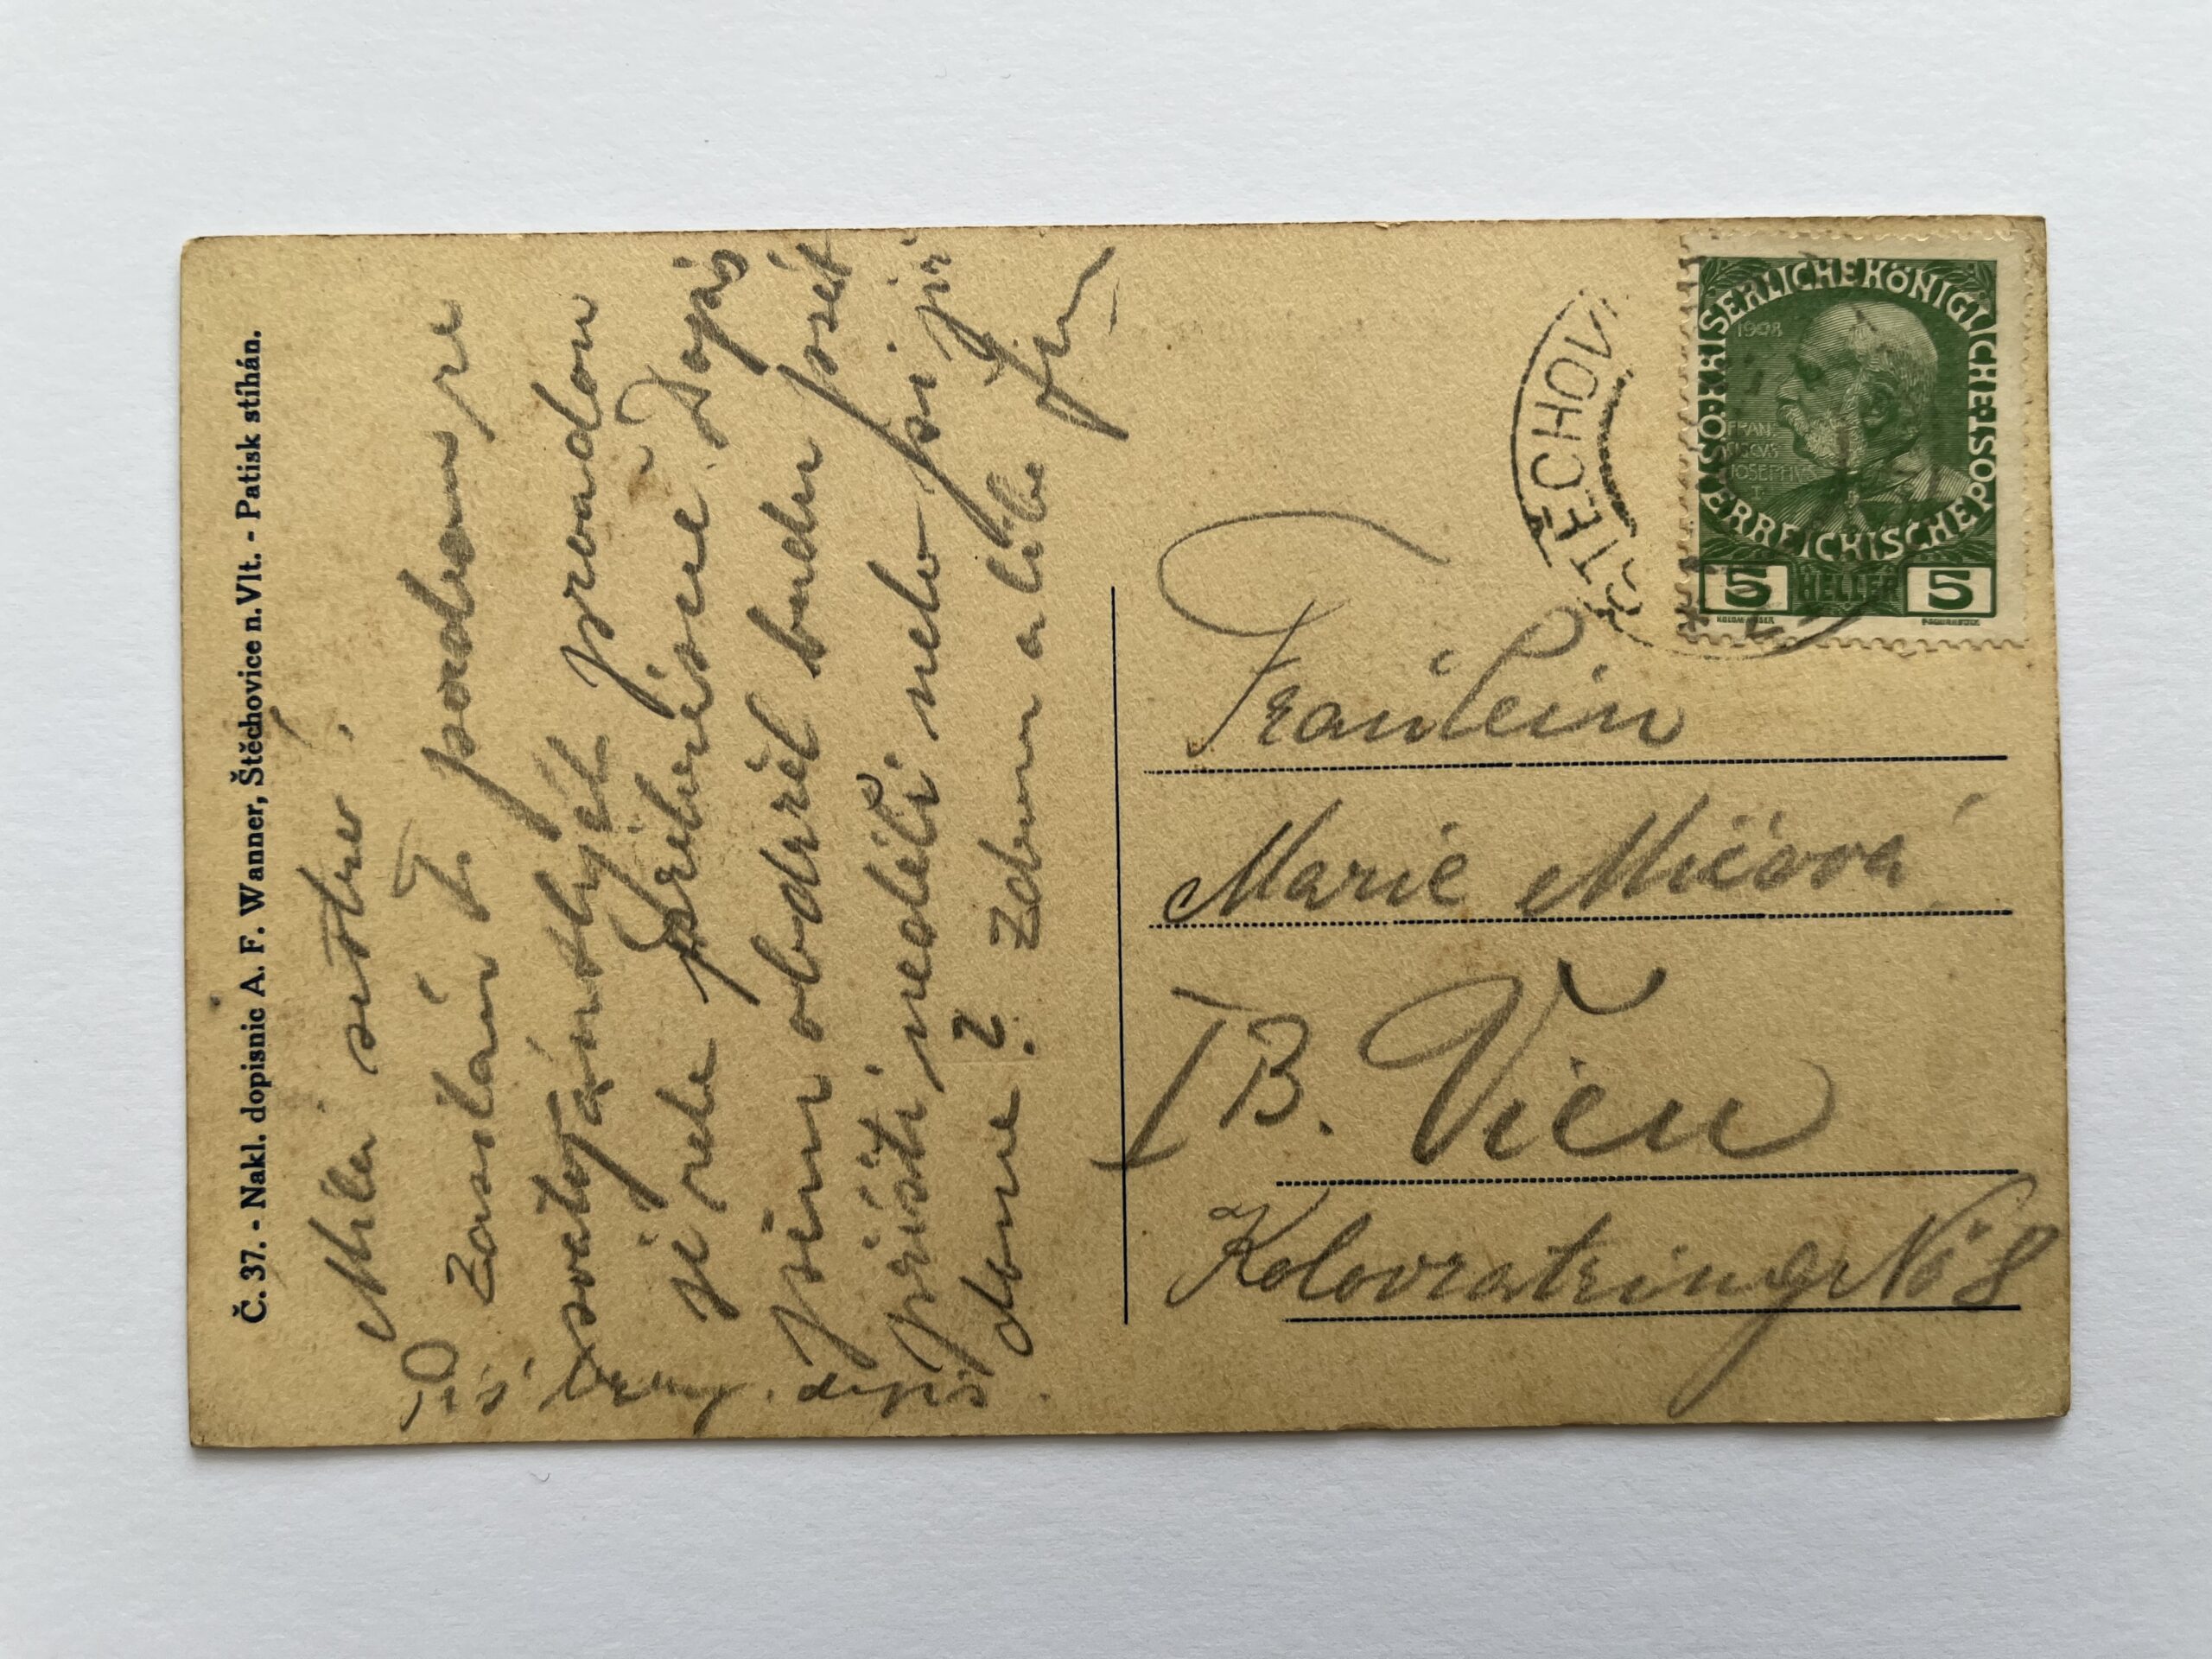 Č. 37. - Nakl. dopisnic A. F. Wanner, Štěchovice n. Vlt. - Patisk stíhán.
Milá sestro!
Zasílám Ti pozdrav ze
svatojánských proudou
je zde přeborisoně Dopis
jsem obdržel budu psát
příští neděli nebo psi již
dřive? Zdrav a líbe
dopis
ŠTĚCHOVI
KAISERLICHE KÖNIGLICHE ÖSTERREICHISCHE POST
1908
FRAN
CISCVS
IOSEPHVS
I
5 HELLER 5
Fräulein
Marie Mičová
I B. Vien
Kolovratring No 8